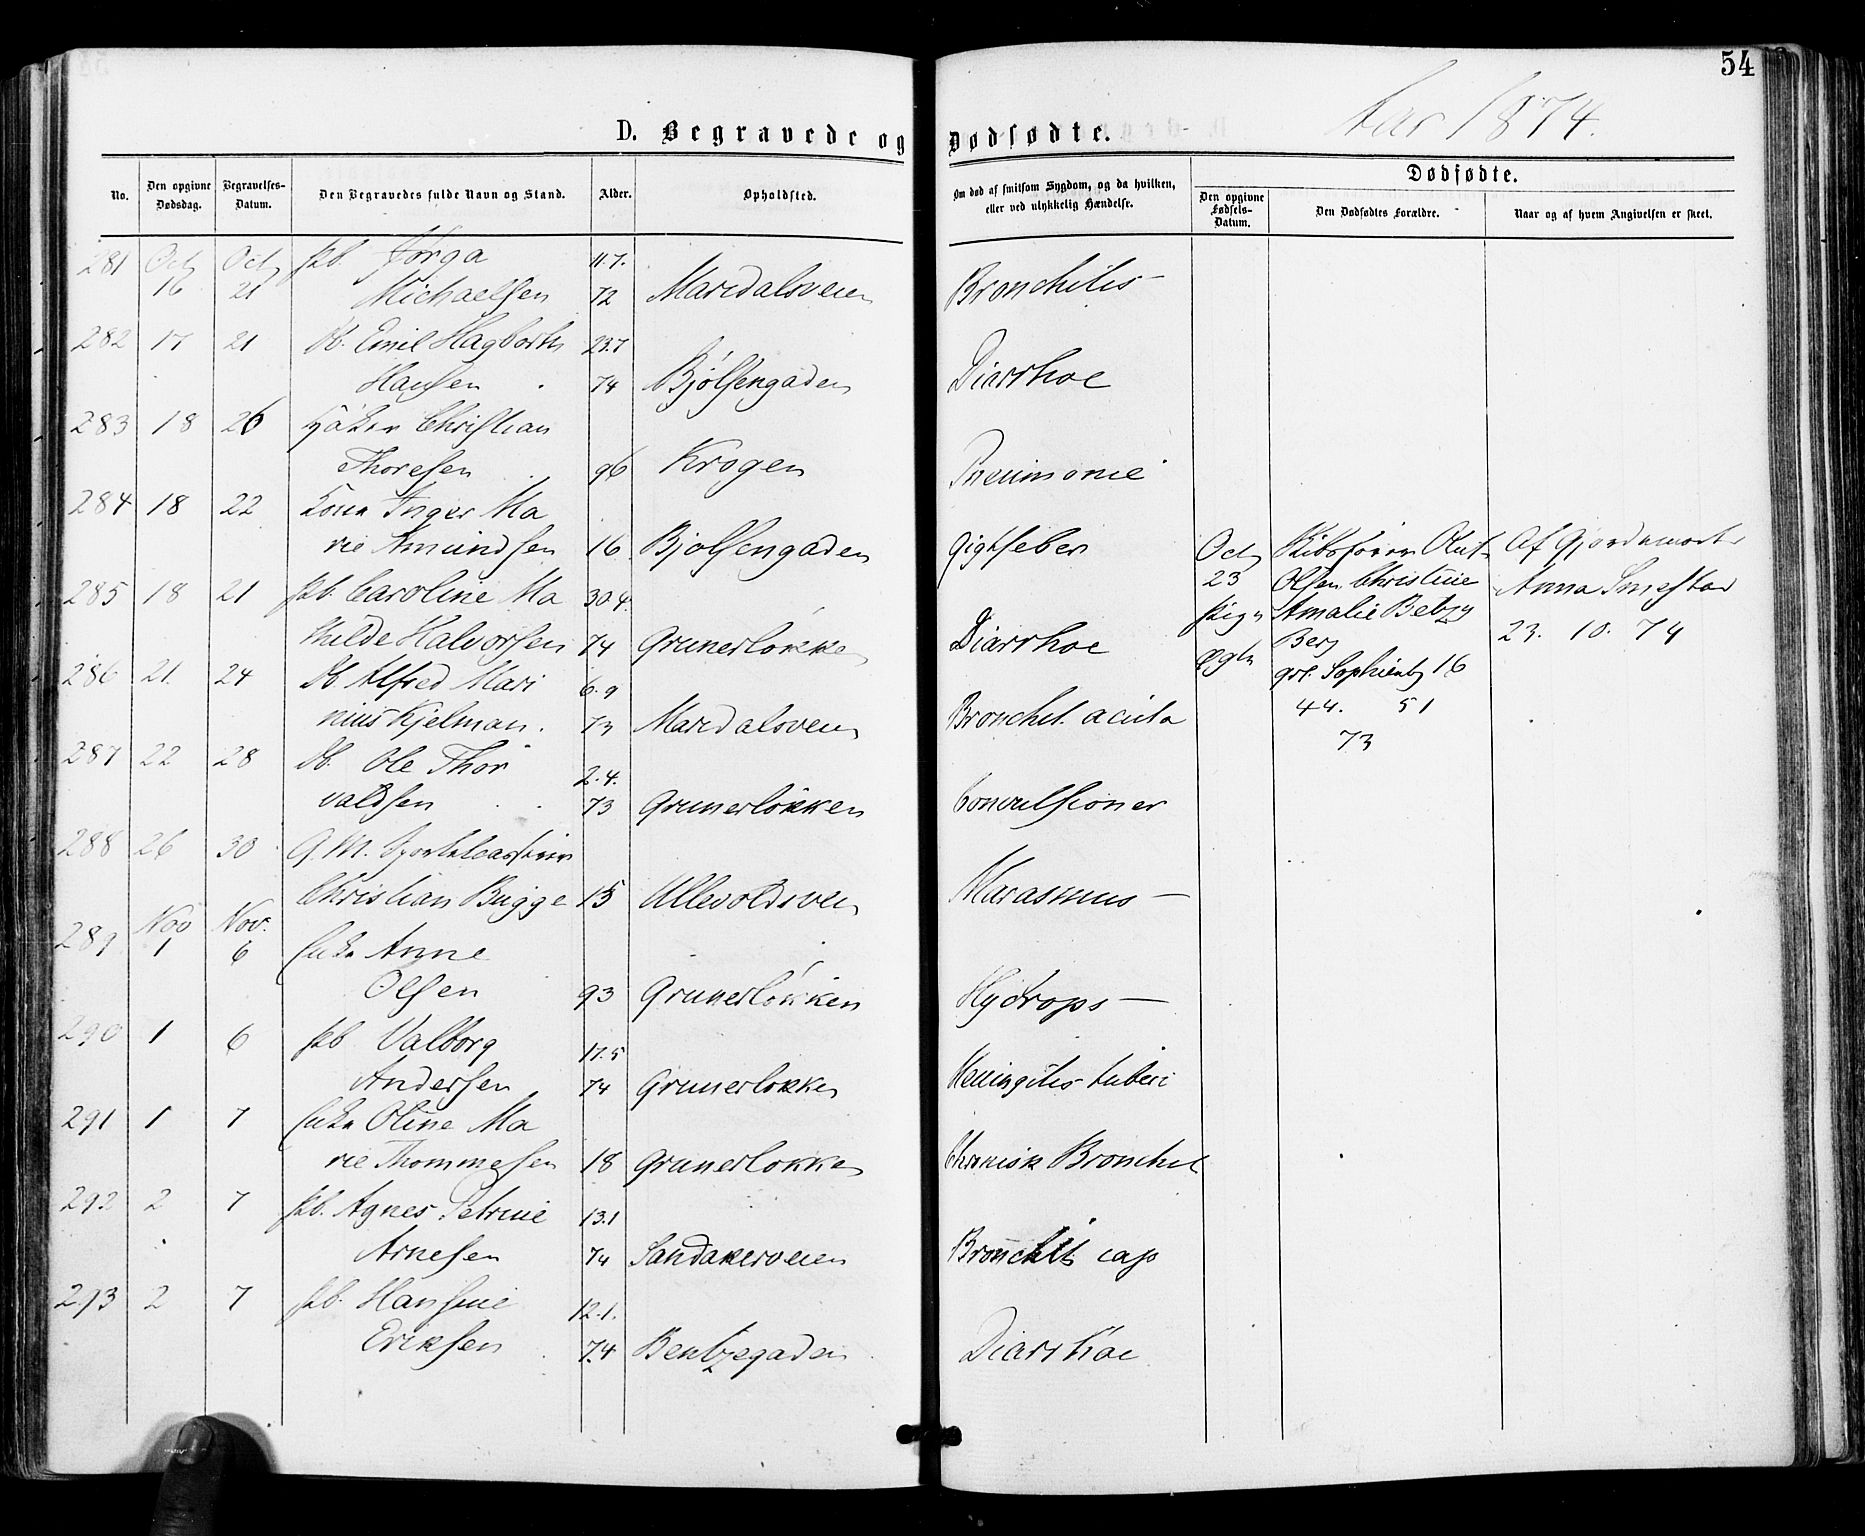 54
Aar 1874.
D. Begravede og Dødsødte.
No.
Den opgivne Dødsdag.
Begravelses-Datum.
Den Begravedes fulde Navn og Stand.
Alder.
Opholdsted.
Om død af smitsom Sygdom, og da hvilken, eller ved ulykkelig Hændelse.
Dødfødte.
Den opgivne Fødsels-Datum.
Den Dødfødtes Forældre.
Naar og af hvem Angivelsen er skeet.
281 Oct Oct pb. Jørga 11.7.
16 21 Michaelsen 72 Maridalsveien Bronchitis
282 17 21 db. Emil Hagbarth 23.7
Hansen 74 Bjølsengaden Diarrhoe
283 18 26 Christian
Thoresen 96 Krogen Pneumonie
284 18 22 Kone Inger Ma
rie Amundsen 16 Bjølsengaden Gigtfeber
285 18 21 pb. Caroline Ma 30 4.
thilde Halvorsen 74 Grunerløkken Diarrhoe
286 21. 24 db Alfred Mari 6.9
nius Kjelman. 73 Maridalsveien Bronchit. acuta
287 22 28 db. Ole Thor 2.4.
valdsen 73 Grunerløkken Convulsioner
288 26 30 G. M.
Christian Bugge 15 Ullevoldsveien Marasmus
289 Nov 1 Nov. 6 Enke Anne
Olsen 93 Grunerløkken Hydrops
290 1 6 pb Valborg 17.5
Andersen 74 Grunerløkken Meningitis tuberc
291 1 7 Enke Oline Ma
rie Thommesen 18 Grunerløkken Chronisk Bronchit
292 2 7 pb. Agnes Petrine 13.1
Arnesen 74 Sandakerveien Bronchit cap
293 2 7 pb. Hansine 12.1.
Eriksen 74 Bentzegaden Diarrhoe
Oct
23
Pige
Ægte
Oluf
Olsen, Christine
Amalie Betzy
Berg
Sophienbg 16
44. 51
73
Af Gjordemoder
Anna Smestad
23. 10. 74